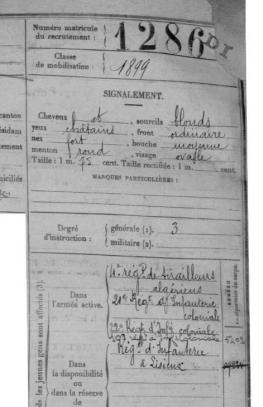 Numéro matricule
du recrutement : 1286
Classe
de mobilisation : 1899
SIGNALEMENT.
Cheveux et , sourcils blonds
yeux châtains , front ordinaire
nez fort , bouche moyenne
menton rond , visage ovale
Taille : 1 m. 75 cent. Taille rectifiée : 1 m. cent.
MARQUES PARTICULIÈRES :
Degré
d'instruction :
générale (1). 3
militaire (2).
Dans
l'armée active.
4e régt de tirailleurs
algériens
21e Régt d'Infanterie
coloniale
22e Régt d'Inf. coloniale
Dans
la disponibilité
ou
dans la réserve
de
Régt d'Infanterie
à Lisieux